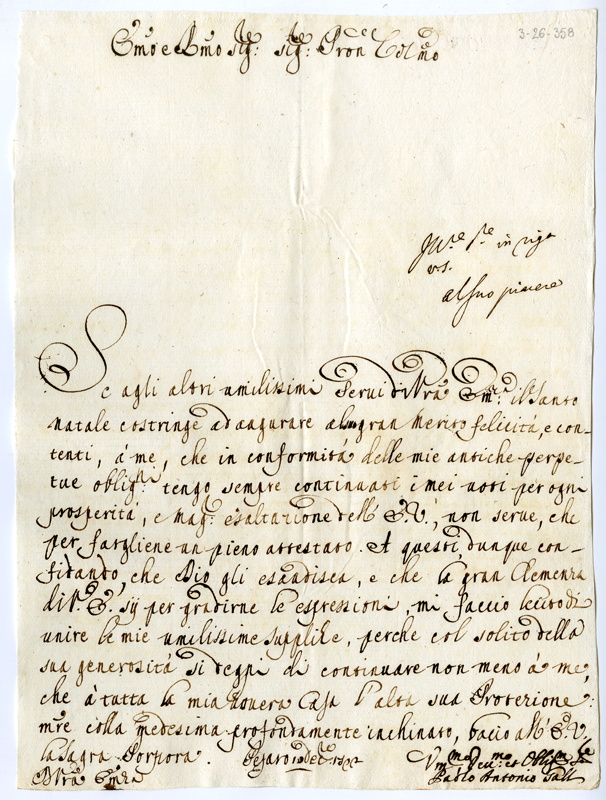 3-26-358
Emo e Rmo Sig: Sig: Pron Colmo
in riga
v.s.
al suo piacere
Se agli altri umilissimi Serui di Vrã Emã il Santo
natale costringe ad augurare al suo gran merito felicità, e con-
tenti, á me, che in conformità delle mie antiche perpe-
tue obligni tengo sempre continuati i miei uoti per ogni
prosperità, e magr esaltazione dell' E.V., non serue, che
per fargliene un pieno attestato. A questi, dunque con-
fidando, che Dio gli esaudisca, e che la gran Clemenza
di V. E. sij per gradirne le espressioni, mi faccio lecito di
unire le mie umilissime suppliche, perche col solito della
sua generosità si degni di continuare non meno á me,
che á tutta la mia pouera Casa l'alta sua Protezione:
mre colla medesima profondamente inchinato, bacio all' E.V.
la Sagra Porpora. Pesaro
Di Vrã Emza
Paolo Antonio